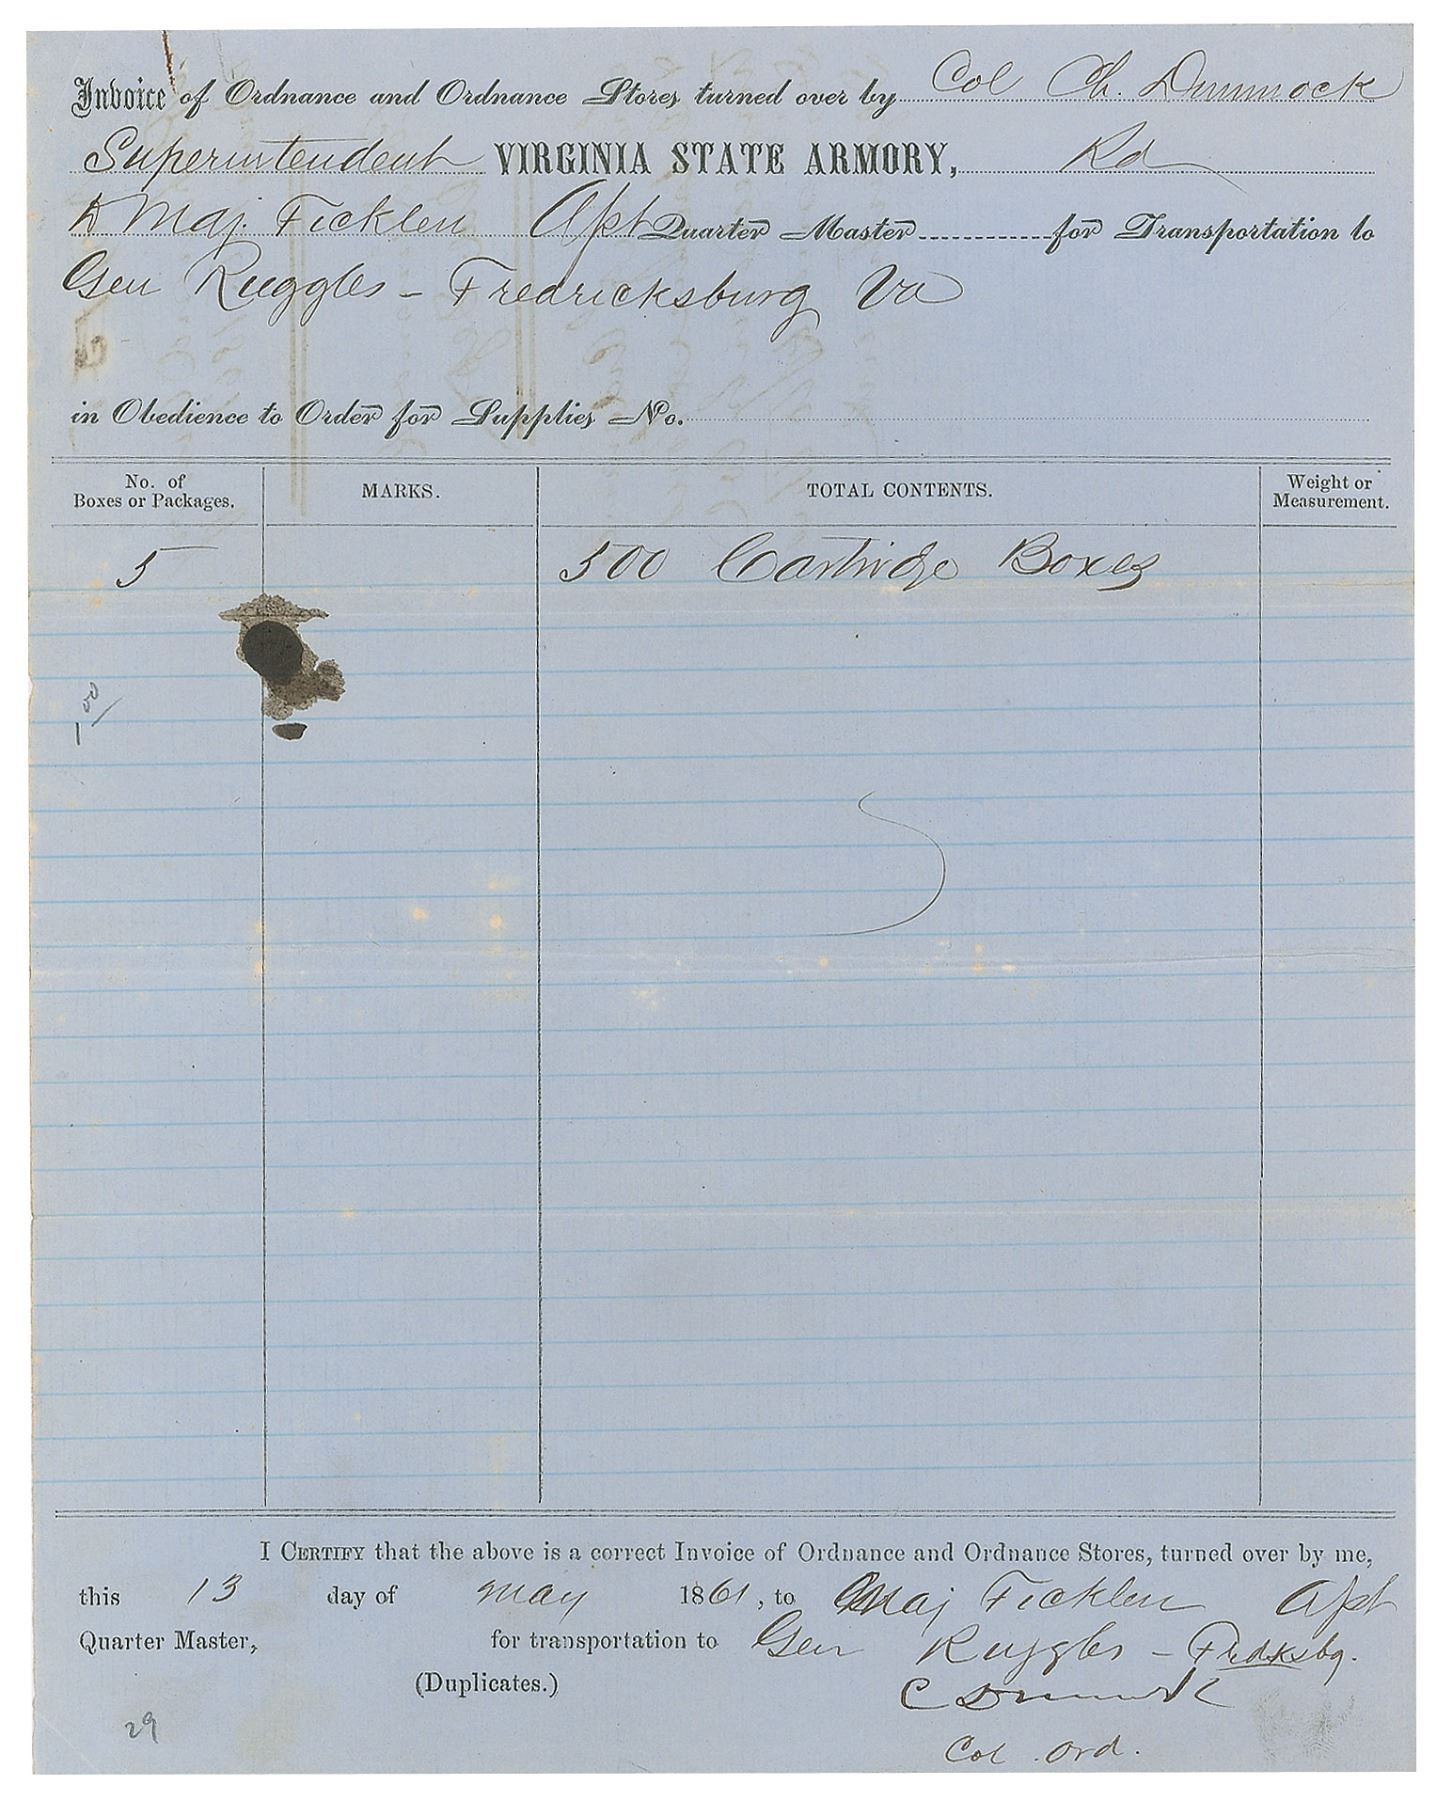 Invoice of Ordnance and Ordnance Stores turned over by Col Ch. Dimmock
Superintendent VIRGINIA STATE ARMORY, Rd
to Maj. Ficklen Asst Quarter Master for Transportation to
Gen Ruggles - Fredricksburg Va
in Obedience to Order for Supplies No.
No. of Boxes or Packages. MARKS. TOTAL CONTENTS. Weight or Measurement.
5 500 Cartridge Boxes
1 00
I CERTIFY that the above is a correct Invoice of Ordnance and Ordnance Stores, turned over by me,
this 13 day of May 1861, to Maj Ficklen Asst
Quarter Master, for transportation to Gen Ruggles - Fredksbg.
(Duplicates.) C Dimmock
29
Col Ord.